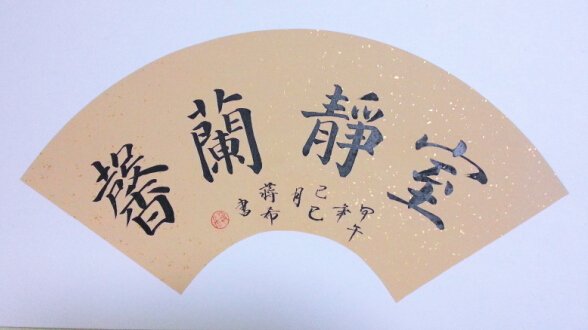 室靜蘭馨
甲午
年
己巳
月
蔣
書